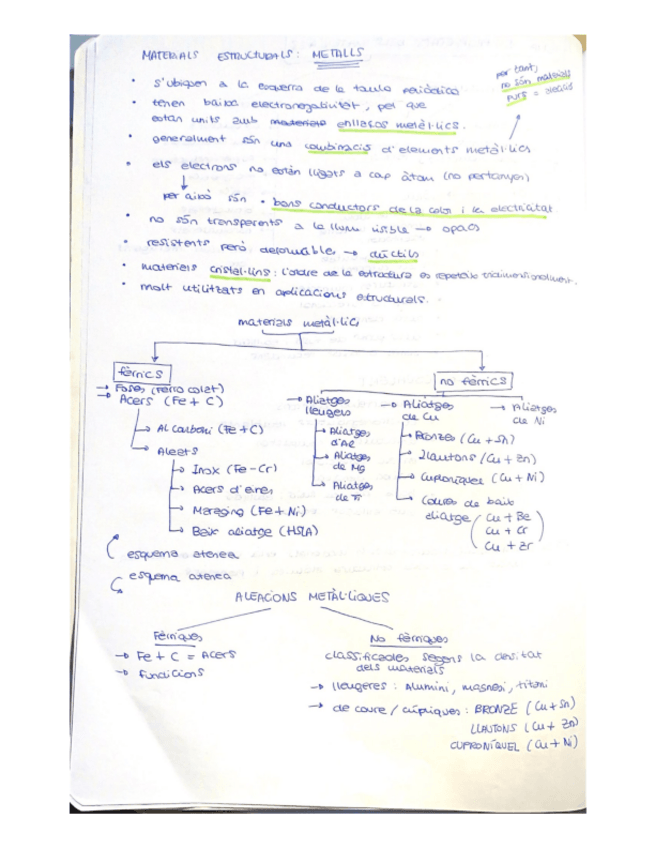 MATERIALS ESTRUCTURALS: METALLS
per tant,
no són materials
purs =
• s'ubiquen a la esquerra de la taula periòdica
• tenen baixa electronegativitat, pel que
estan units amb materials enllaços metàl·lics.
• generalment són una combinació d'elements metàl·lics
• els electrons no estan lligats a cap àtom (no pertanyen)
per això són • bons conductors de la calor i la electricitat
• no són transparents a la llum visible → opacs
• resistents però deformables → dúctils
• materials cristal·lins: l'ordre de la estructura es repeteix tridimensionalment.
• molt utilitzats en aplicacions estructurals.
materials metàl·lics
fèrrics
no fèrrics
→ Foses (Ferro colat)
→ Acers (Fe + C)
→ Al carboni (Fe + C)
→ Aleats
→ Inox (Fe-Cr)
→ Acers d'eines
→ Maraging (Fe + Ni)
→ Baix aliatge (HSLA)
→ Aliatges
lleugers
→ Aliatges
d'Al
→ Aliatges
de Mg
→ Aliatges
de Ti
→ Aliatges
de Cu
→ Bronzes (Cu + Sn)
→ Llautons (Cu + Zn)
→ Cuproníquels (Cu + Ni)
→ Coures de baix
aliatge (Cu + Be
Cu + Cr
Cu + Zr)
→ Aliatges
de Ni
esquema atenea
esquema atenea
ALEACIONS METÀL·LIQUES
Fèrriques
→ Fe + C = Acers
→ fundicions
No fèrriques
classificades segons la densitat
dels materials
→ lleugeres: Alumini, magnesi, titani
→ de coure / cúpriques: BRONZE (Cu + Sn)
LLAUTONS (Cu + Zn)
CUPRONÍQUEL (Cu + Ni)